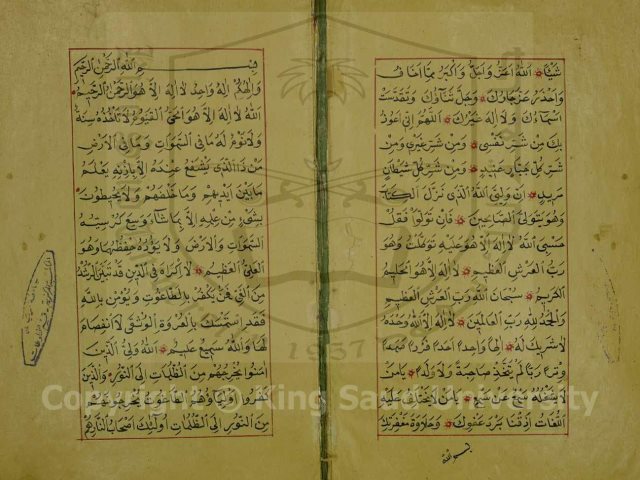 شَيْئًا اللهُ اَعَزُّ وَاَجَلُّ وَاَكْبَرُ مِمَّا اَخَافُ
وَاَحْذَرُ عَزَّ جَارُكَ وَجَلَّ ثَنَاؤُكَ وَتَقَدَّسَتْ
اَسْمَاؤُكَ وَلَا اِلٰهَ غَيْرُكَ اَللّٰهُمَّ اِنّى اَعُوذُ
بِكَ مِنْ شَرِّ نَفْسِى وَمِنْ شَرِّ غَيْرِى وَمِنْ
شَرِّ كُلِّ جَبَّارٍ عَنِيدٍ وَمِنْ شَرِّ كُلِّ شَيْطَانٍ
مَرِيدٍ اِنَّ وَلِيِّىَ اللهُ الَّذِى نَزَّلَ الْكِتَابَ
وَهُوَ يَتَوَلَّى الصَّالِحِينَ فَاِنْ تَوَلَّوْا فَقُلْ
حَسْبِىَ اللهُ لَا اِلٰهَ اِلَّا هُوَ عَلَيْهِ تَوَكَّلْتُ وَهُوَ
رَبُّ الْعَرْشِ الْعَظِيمِ لَا اِلٰهَ اِلَّا هُوَ الْحَلِيمُ
الْكَرِيمُ سُبْحَانَ اللهِ رَبِّ الْعَرْشِ الْعَظِيمِ
وَالْحَمْدُ لِلّٰهِ رَبِّ الْعَالَمِينَ لَا اِلٰهَ اِلَّا اللهُ وَحْدَهُ
لَا شَرِيكَ لَهُ اِلٰهًا وَاحِدًا اَحَدًا فَرْدًا صَمَدًا
وَتْرًا رَبًّا لَمْ يَتَّخِذْ صَاحِبَةً وَلَا وَلَدًا يَا مَنْ
لَا يَشْغَلُهُ سَمْعٌ عَنْ سَمْعٍ يَا مَنْ لَا يَخْتَلِفُ عَلَيْهِ
اللُّغَاتُ اَذِقْنَا بَرْدَ عَفْوِكَ وَحَلَاوَةَ مَغْفِرَتِكَ
بسم الله
بِسْمِ اللهِ الرَّحْمٰنِ الرَّحِيمِ
وَاِلٰهُكُمْ اِلٰهٌ وَاحِدٌ لَا اِلٰهَ اِلَّا هُوَ الرَّحْمٰنُ الرَّحِيمُ
اَللهُ لَا اِلٰهَ اِلَّا هُوَ الْحَىُّ الْقَيُّومُ لَا تَأْخُذُهُ سِنَةٌ
وَلَا نَوْمٌ لَهُ مَا فِى السَّمٰوَاتِ وَمَا فِى الْاَرْضِ
مَنْ ذَا الَّذِى يَشْفَعُ عِنْدَهُ اِلَّا بِاِذْنِهِ يَعْلَمُ
مَا بَيْنَ اَيْدِيهِمْ وَمَا خَلْفَهُمْ وَلَا يُحِيطُونَ
بِشَىْءٍ مِنْ عِلْمِهِ اِلَّا بِمَا شَاءَ وَسِعَ كُرْسِيُّهُ
السَّمٰوَاتِ وَالْاَرْضَ وَلَا يَؤُدُهُ حِفْظُهُمَا وَهُوَ
الْعَلِىُّ الْعَظِيمُ لَا اِكْرَاهَ فِى الدِّينِ قَدْ تَبَيَّنَ الرُّشْدُ
مِنَ الْغَىِّ فَمَنْ يَكْفُرْ بِالطَّاغُوتِ وَيُؤْمِنْ بِاللهِ
فَقَدِ اسْتَمْسَكَ بِالْعُرْوَةِ الْوُثْقٰى لَا انْفِصَامَ
لَهَا وَاللهُ سَمِيعٌ عَلِيمٌ اَللهُ وَلِىُّ الَّذِينَ
اٰمَنُوا يُخْرِجُهُمْ مِنَ الظُّلُمَاتِ اِلَى النُّورِ وَالَّذِينَ
كَفَرُوا اَوْلِيَاؤُهُمُ الطَّاغُوتُ يُخْرِجُونَهُمْ
مِنَ النُّورِ اِلَى الظُّلُمَاتِ اُولٰئِكَ اَصْحَابُ النَّارِ هُمْ
1957
Copyright © King Saud University